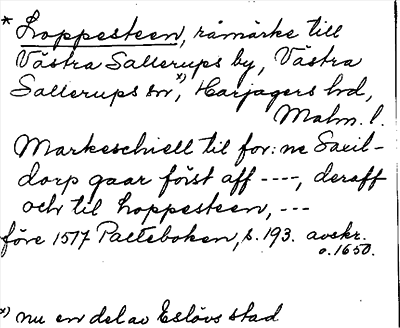 * Loppesteen, råmärke till
Västra Sallerups by, Västra
Sallerups sn*), Harjagers hd,
Malm. l.
Markeschiell til for:ne Saxil-
dorp gaar först aff ----, deraff
och til Loppesteen, ---
före 1517 Palteboken, s. 193. avskr.
o. 1650.
*) nu en del av Eslövs stad